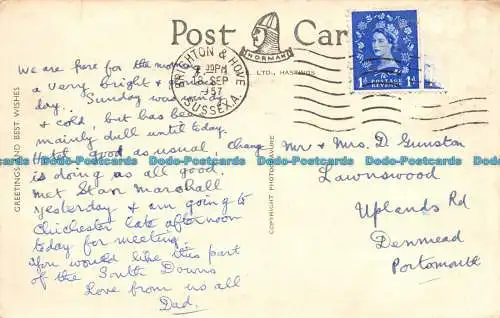 Post Card
NORMAN
LTD., HASTINGS
BRIGHTON & HOVE
PM
SEP
1957
SUSSEX A.
1d POSTAGE REVENUE 1d
GREETINGS AND BEST WISHES
COPYRIGHT PHOTOGRAVURE
We are here for the morning
a very bright &
day. Sunday was windy
& cold, but has been
mainly dull until today.
Hotel good as usual, change
is doing as all good.
Met Stan Marshall
yesterday & am going to
Chichester late afternoon
today for meeting.
You would like this part
of the South Downs
Love from us all
Dad.
Mr & Mrs. D. Gunston
Lawnswood
Uplands Rd
Denmead
Portsmouth
Dodo-Postcards Dodo-Postcards Dodo-Postcards Dodo-Postcards